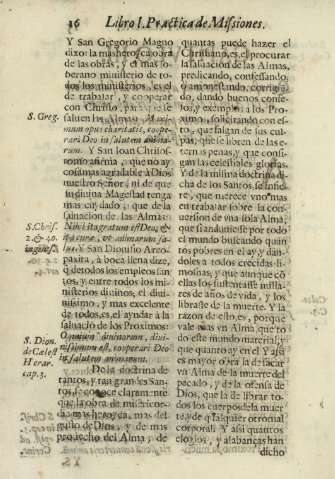 16 Libro I. Practica de Missiones.
Y San Gregorio Magno
dixo: la mas heroica obra
de las obras, y el mas so-
berano ministerio de to-
dos los ministerios, es el
de trabajar, y cooperar
con Christo, para que se
S. Greg. salven las Almas: Maxi-
mum opus charitatis, coope-
rari Deo in salutem anima-
rum. Y San Juan Chrisos-
tomo afirma, que no ay
cosa mas agradable à Dios
nuestro Señor, ni de que
su divina Magestad tenga
mas cuydado, que de la
salvacion de las Almas:
S. Chris. Nihil ita gratum est Deo, &
ita curæ, ut animarum sa-
lus. Y San Dionisio Areo-
pagita, à boca llena dize,
q de todos los empleos san-
tos, y entre todos los mi-
nisterios divinos; el divi-
nissimo, y mas excelente
de todos, es el ayudar à la
salvacio de los Proximos:
S. Dion. Omnium divinorum, divi-
de Cælest. nissimum est, cooperari Deo
Hierar. in salutem animarum.
cap. 3. De la doctrina de
tantos, y tan grandes San-
tos se conoce claramente
que la obra de misericor-
dia mas heroyca, mas del
gusto de Dios, y de mas
provecho del Alma, de
quantas puede hazer el
Christiano, es el procurar
la salvacion de las Almas,
predicando, confessando,
ò amonestando, corrigiẽ-
do, dando buenos conse-
jos, y exemplos à los Pro-
ximos, solicitando con es-
to, que salgan de sus cul-
pas, que se libren de las e-
ternas penas, y que consi-
gan las celestiales glorias.
Y de la misma doctrina di-
cha de los Santos se infie-
re, que merece vno mas
en trabajar sobre la con-
version de vna sola Alma,
que si anduviesse por todo
el mundo buscando quan-
tos pobres en el ay, y dan-
doles à todos crecidas li-
mosnas, y que aunque cõ
ellas los sustentasse milla-
res de años de vida, y los
librasse de la muerte. Y la
razon de esto es, porque
vale mas vn Alma, que to-
do este mundo material, y
que quanto ay en el. Y assi
es mayor obra la de sacar
vn Alma de la muerte del
pecado, y de la ofensa de
Dios, que la de librar to-
dos los cuerpos de la muer-
te, y de qualquier otro mal
corporal. Y assi quantos
elogios, y alabanças han
dicho